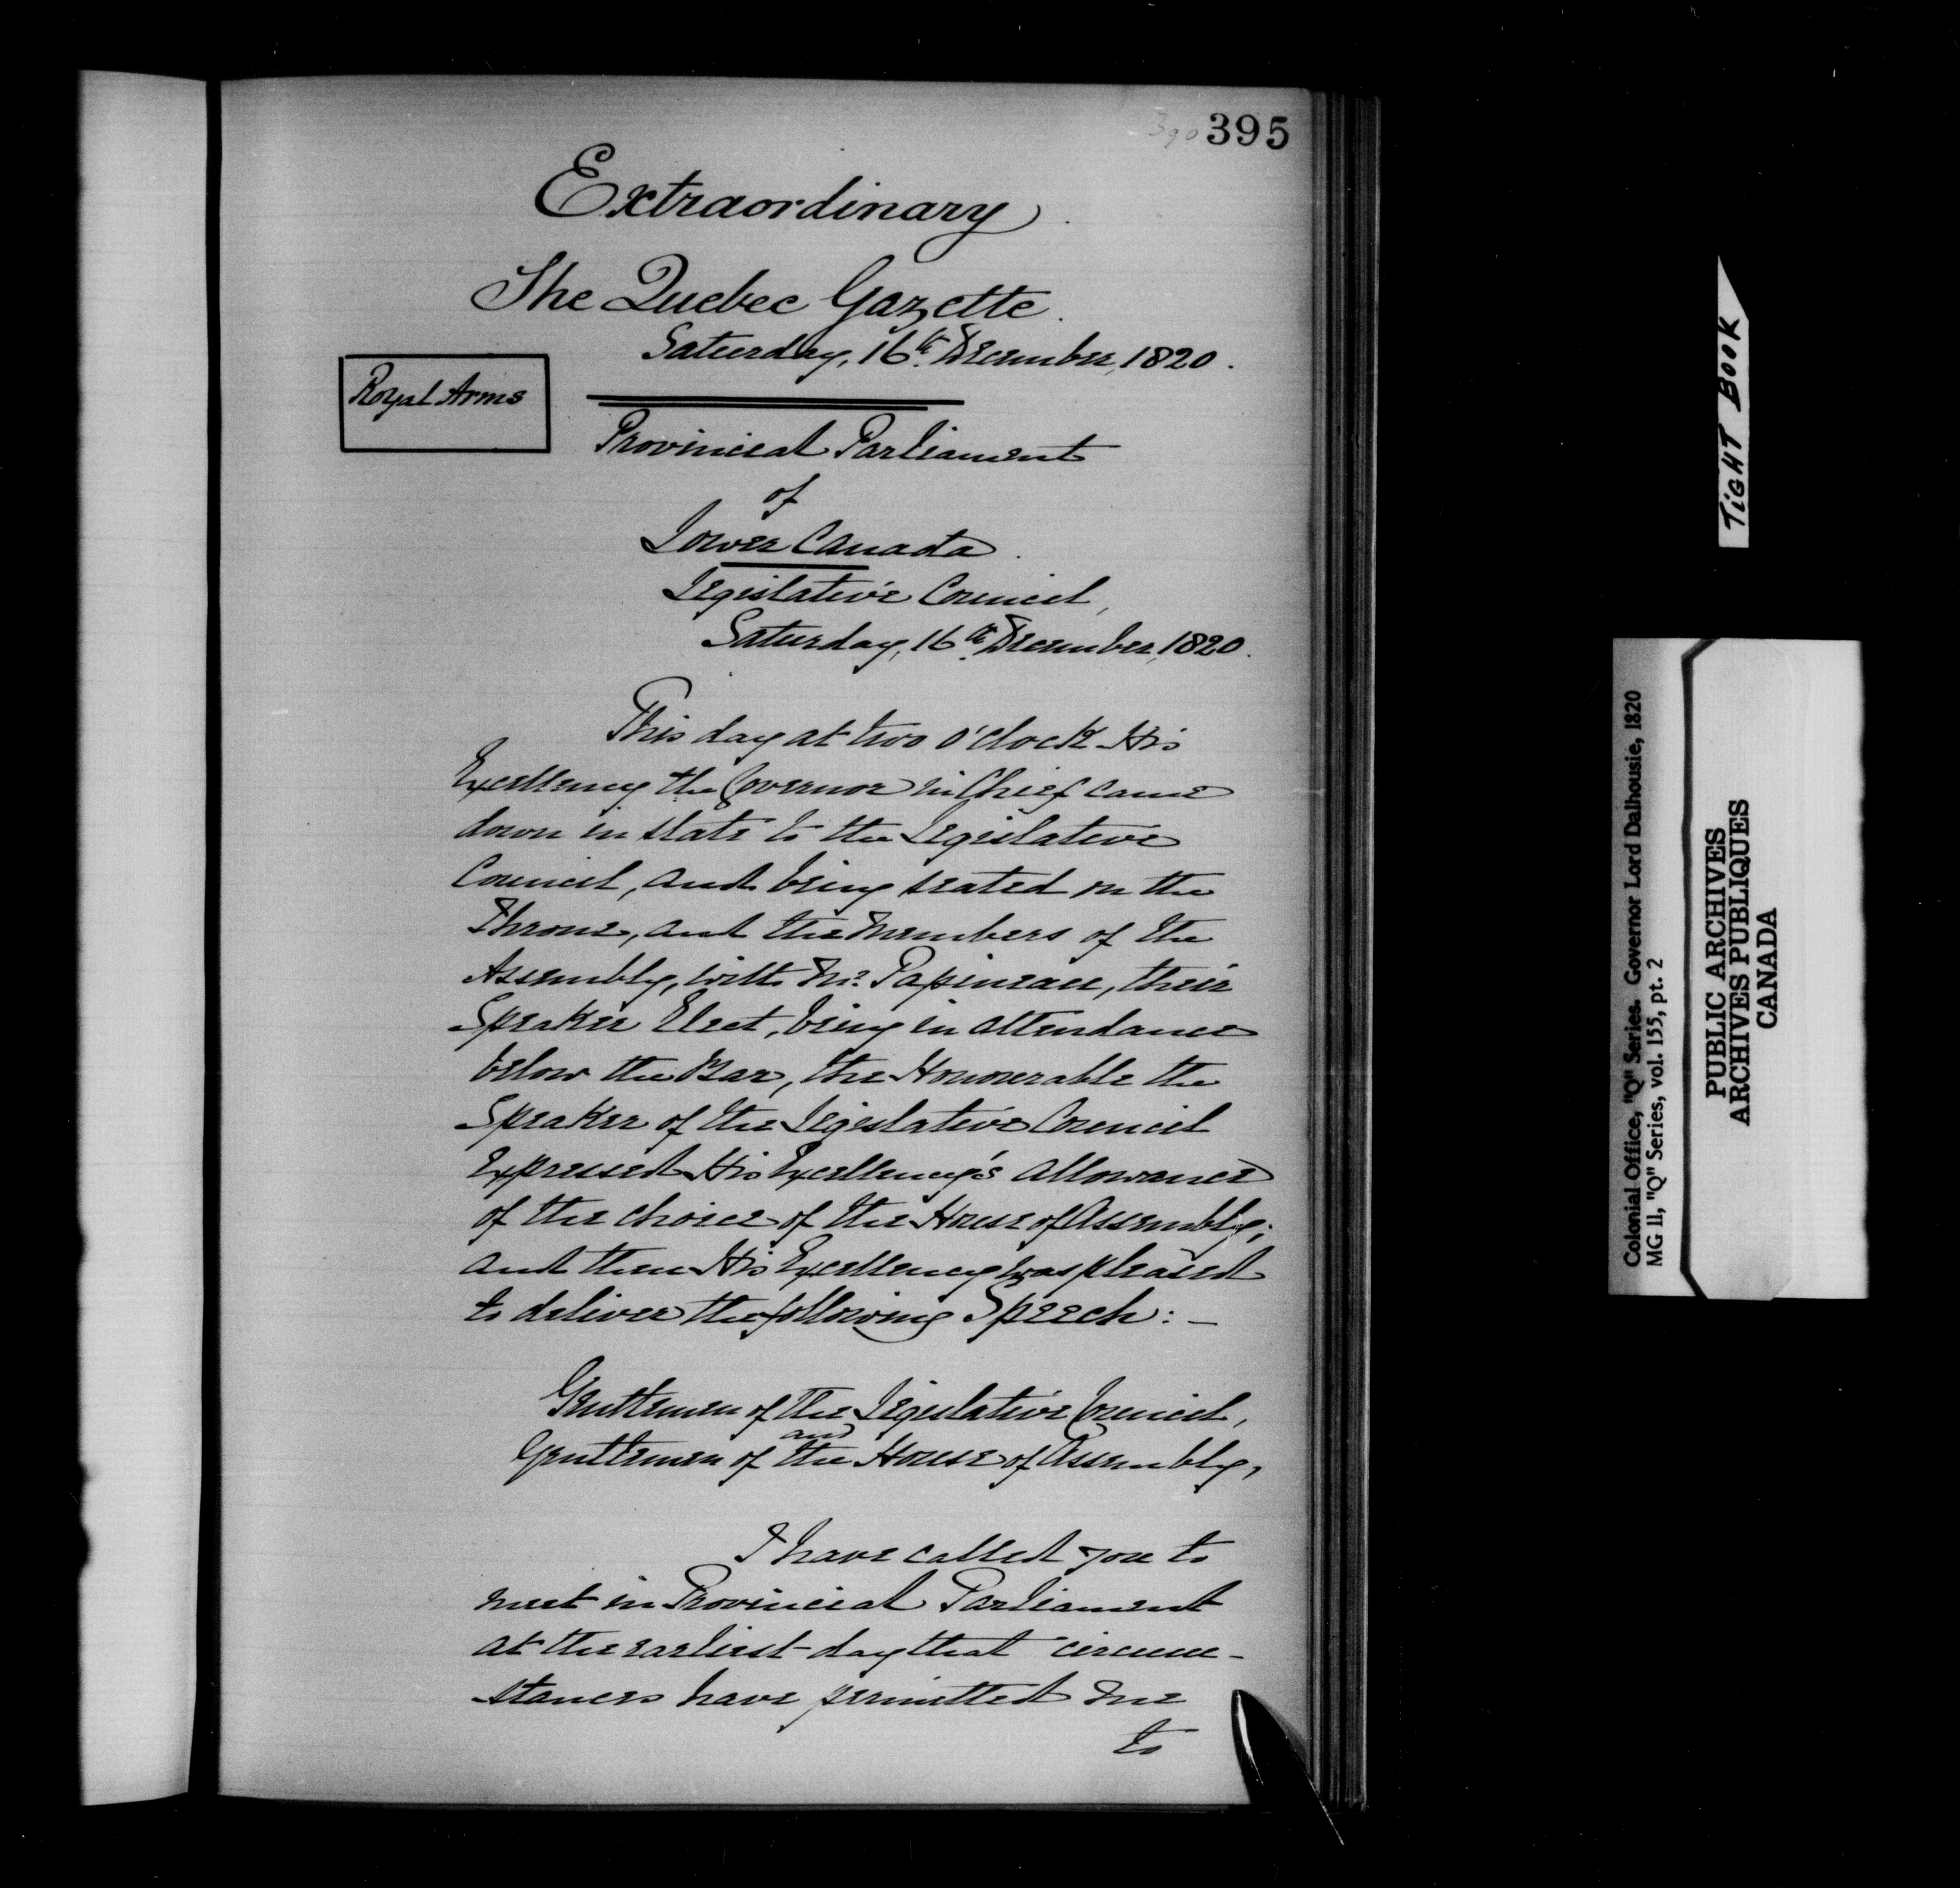 390 395
Extraordinary
The Quebec Gazette.
Saturday, 16th December, 1820.
Royal Arms
Provincial Parliament
of
Lower Canada.
Legislative Council,
Saturday, 16th December, 1820.
This day at two o'clock His
Excellency the Governor in Chief came
down in state to the Legislative
Council, and being seated on the
Throne, and the Members of the
Assembly, with Mr. Papineau, their
Speaker Elect, being in attendance
below the Bar, the Honourable the
Speaker of the Legislative Council
expressed His Excellency's allowance
of the choice of the House of Assembly;
and then His Excellency was pleased
to deliver the following Speech:—
Gentlemen of the Legislative Council,
and
Gentlemen of the House of Assembly,
I have called you to
meet in Provincial Parliament
at the earliest day that circum-
stances have permitted me
to
TIGHT BOOK
Colonial Office, "Q" Series. Governor Lord Dalhousie, 1820
MG 11, "Q" Series, vol. 155, pt. 2
PUBLIC ARCHIVES
ARCHIVES PUBLIQUES
CANADA